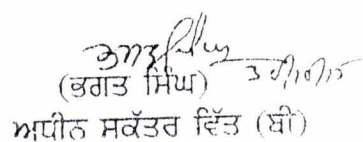 (ਭਗਤ ਸਿੰਘ)
ਅਧੀਨ ਸਕੱਤਰ ਵਿੱਤ (ਬੀ)